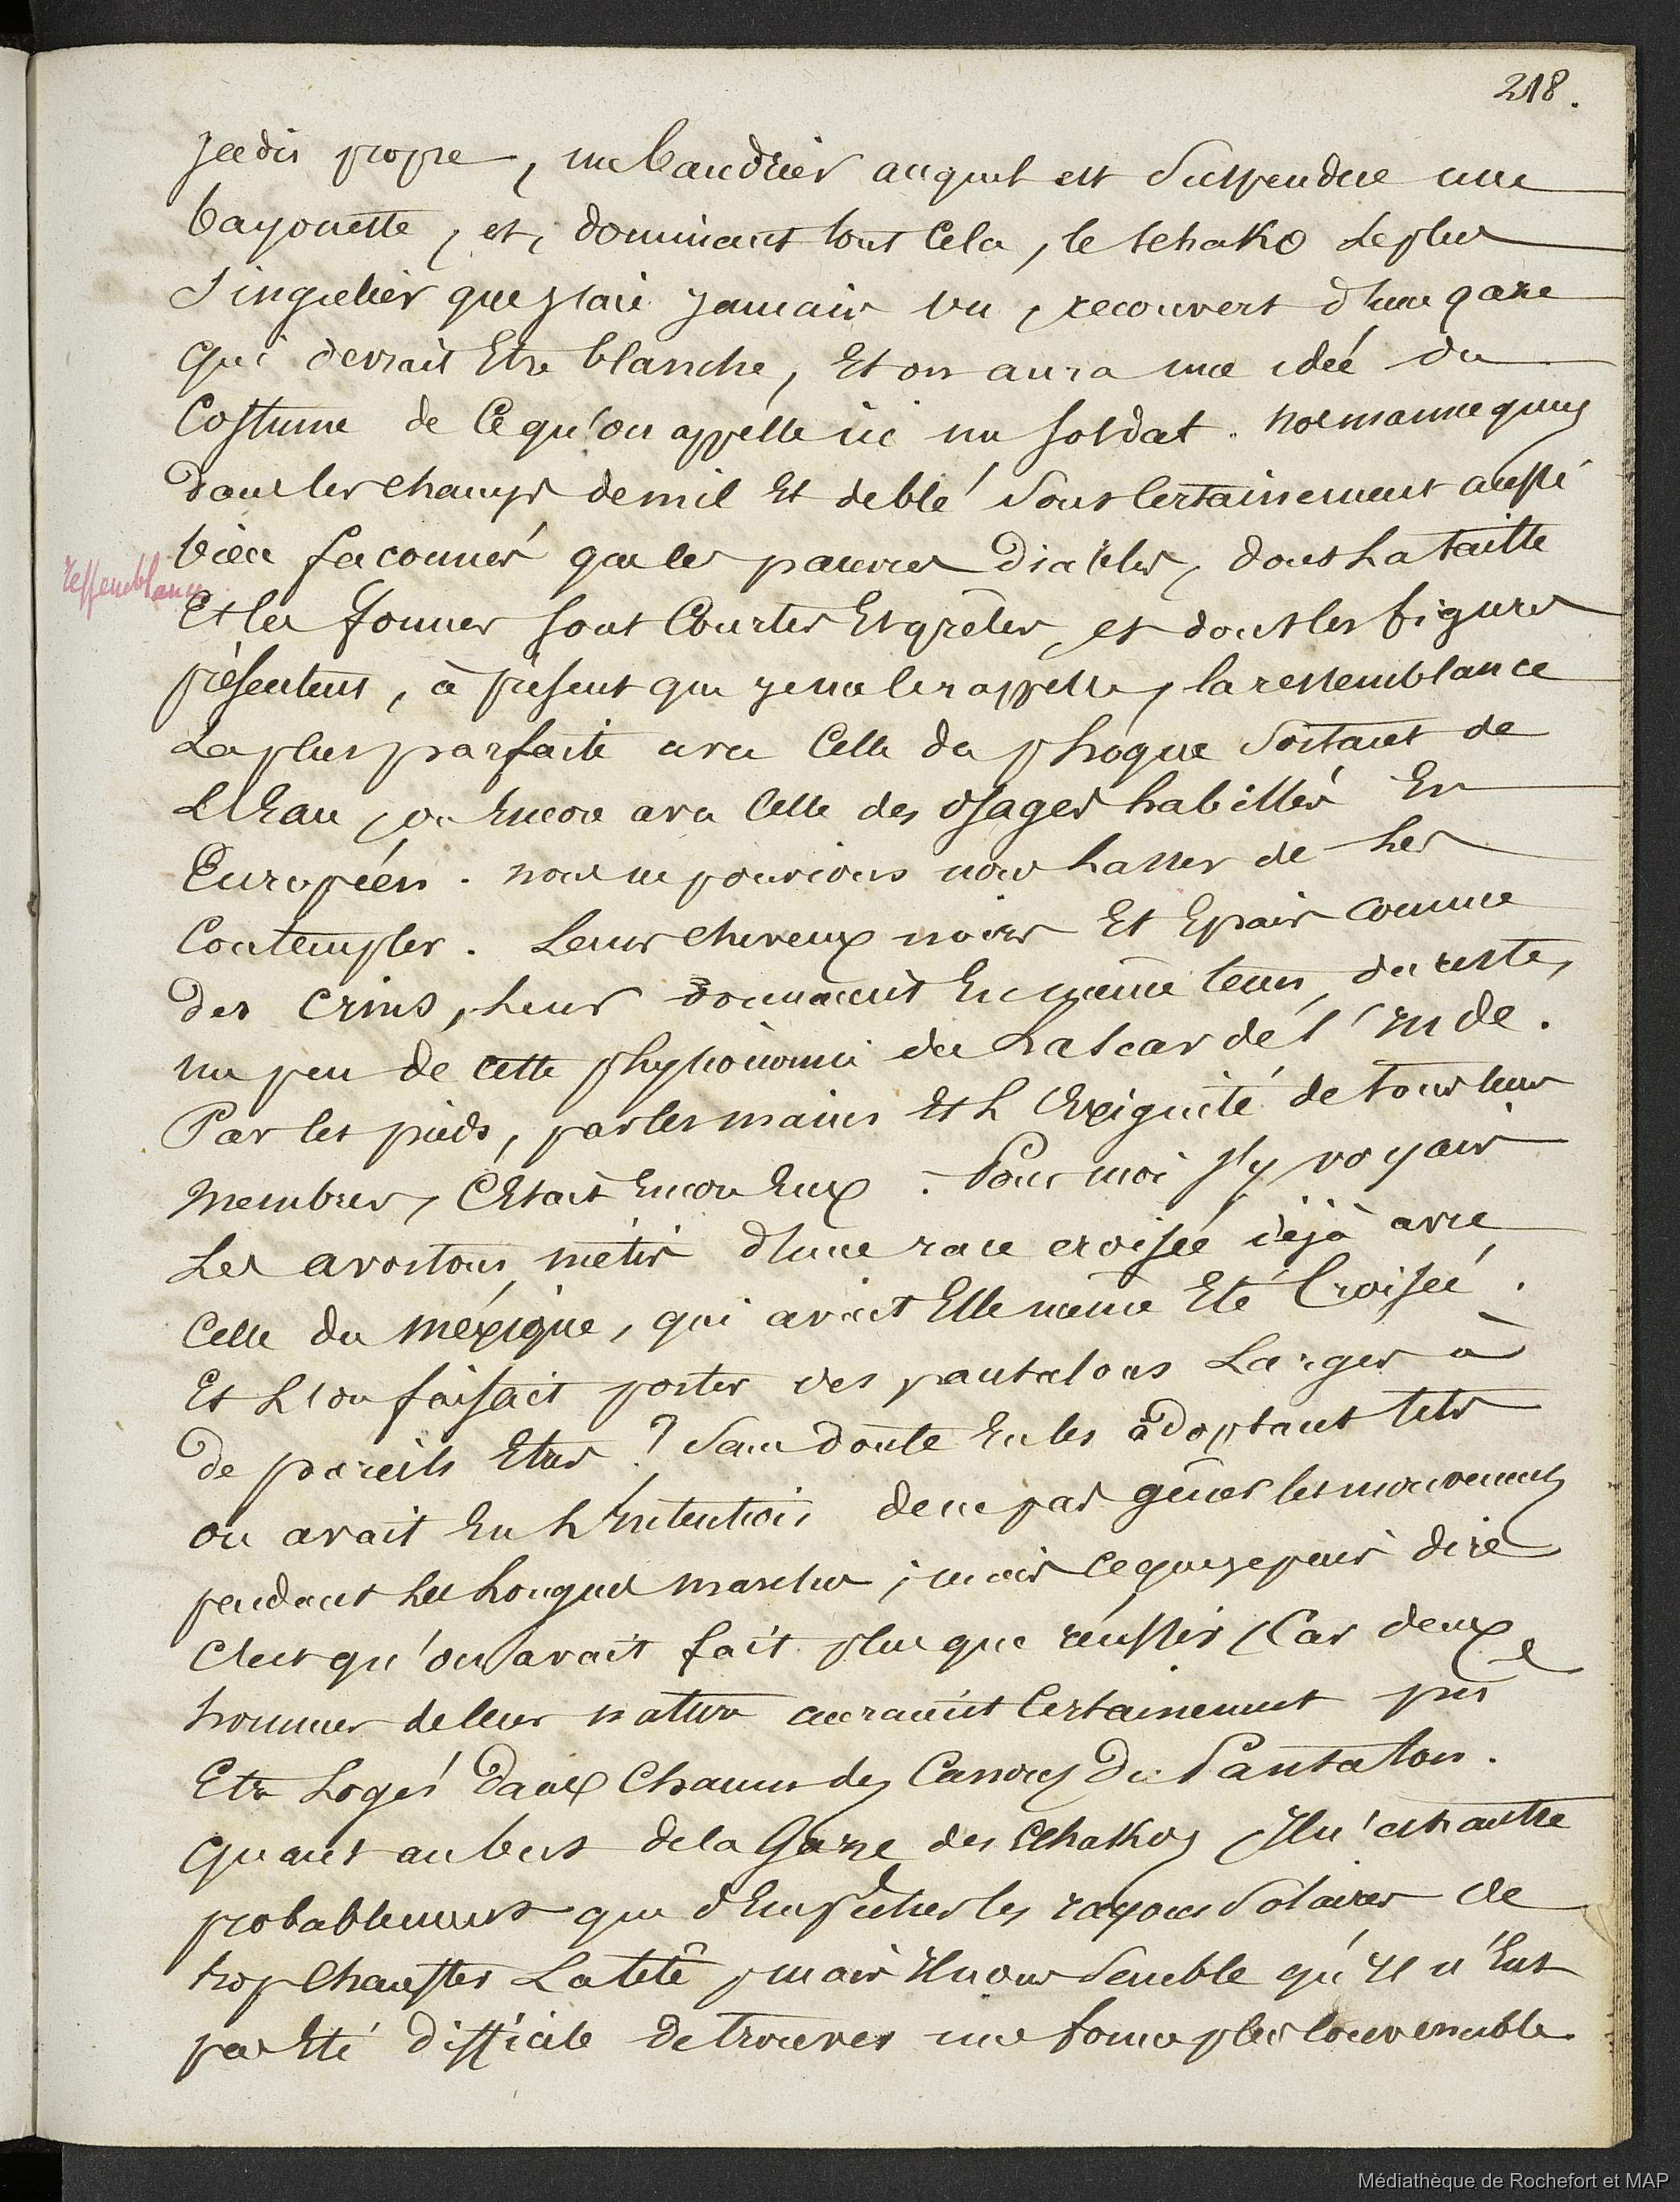 218.
jadis propre, un baudrier auquel est suspendue une
bayonette, et, dominant tout cela, le schako le plus
singulier que j'aie jamais vu, recouvert d'une gaze
qui devrait Etre blanche, Et on aura une idée du
Costume de Ce qu'on appelle ici un soldat. nos mannequins
dans les champs de mil Et de blé sont Certainement aussi
bien façonnés que les pauvres Diables, dont La taille
ressemblance
Et les formes sont Courtes Et grêles, et dont les figures
présentent, à présent que je me le rappelle, la ressemblance
La plus parfaite avec Celle du phoque sortant de
L'Eau, ou Encore avec Celle des osages habillés En
Européen. nous ne pouvions nous lasser de Les
Contempler. Leurs cheveux noirs Et Epais comme
des Crins, Leur donnaient En même tems, du reste,
un peu de cette physionomie du Lascar de l'Inde.
Par les pieds, par les mains Et L'Exiguité de tous leurs
membres, C'Etait Encore Eux. Pour moi j'y voyais
Les avortons métis d'une race croisée déjà avec
Celle du méxique, qui avait Elle même Eté Croisée.
Et L'on faisait porter des pantalons Larges à
de pareils Etres ? Sans doute En les adoptant tels
on avait Eu L'Intention de ne pas gêner les mouvements
pendant Les Longues marches ; mais Ce que je puis dire
C'est qu'on avait fait plus que réussir, Car deux
hommes de leur nature auraient Certainement pu
Etre Logés Dans Chacun des Canons Du Pantalon.
Quant au but de la Gaze des schakos, Il n'est autre
probablement que d'Empêcher les rayons Solaires de
trop Chauffer La tête, mais Il nous Semble qu'Il n'Eut
pas Eté difficile de trouver une forme plus Convenable.
Médiathèque de Rochefort et MAP